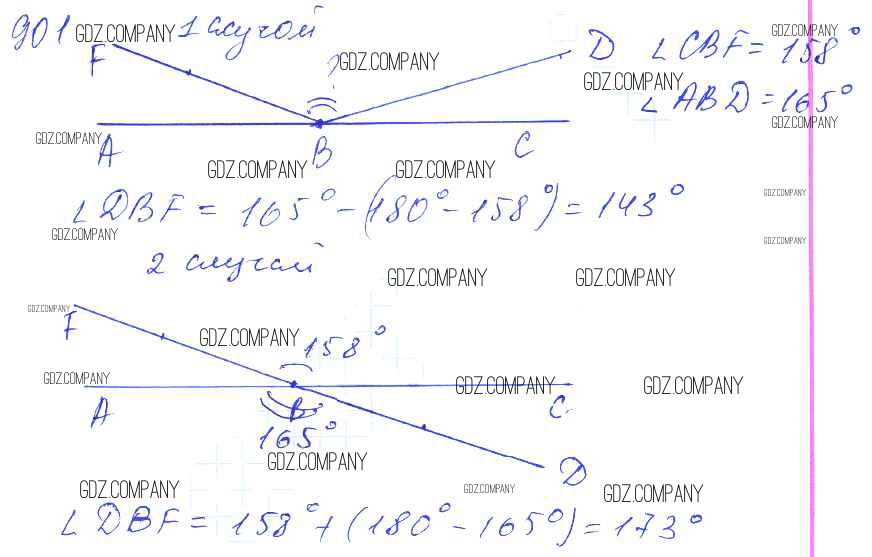 901 GDZ.COMPANY 1 случай GDZ.COMPANY
F ? GDZ.COMPANY D ∠ CBF = 158°
GDZ.COMPANY ∠ ABD = 165°
GDZ.COMPANY GDZ.COMPANY
A B C
GDZ.COMPANY GDZ.COMPANY GDZ.COMPANY
∠ DBF = 165° - (180° - 158°) = 143°
GDZ.COMPANY GDZ.COMPANY
2 случай
GDZ.COMPANY GDZ.COMPANY
GDZ.COMPANY
F GDZ.COMPANY 158°
GDZ.COMPANY GDZ.COMPANY GDZ.COMPANY
A B C
165°
GDZ.COMPANY D
GDZ.COMPANY GDZ.COMPANY GDZ.COMPANY
∠ DBF = 158° + (180° - 165°) = 173°